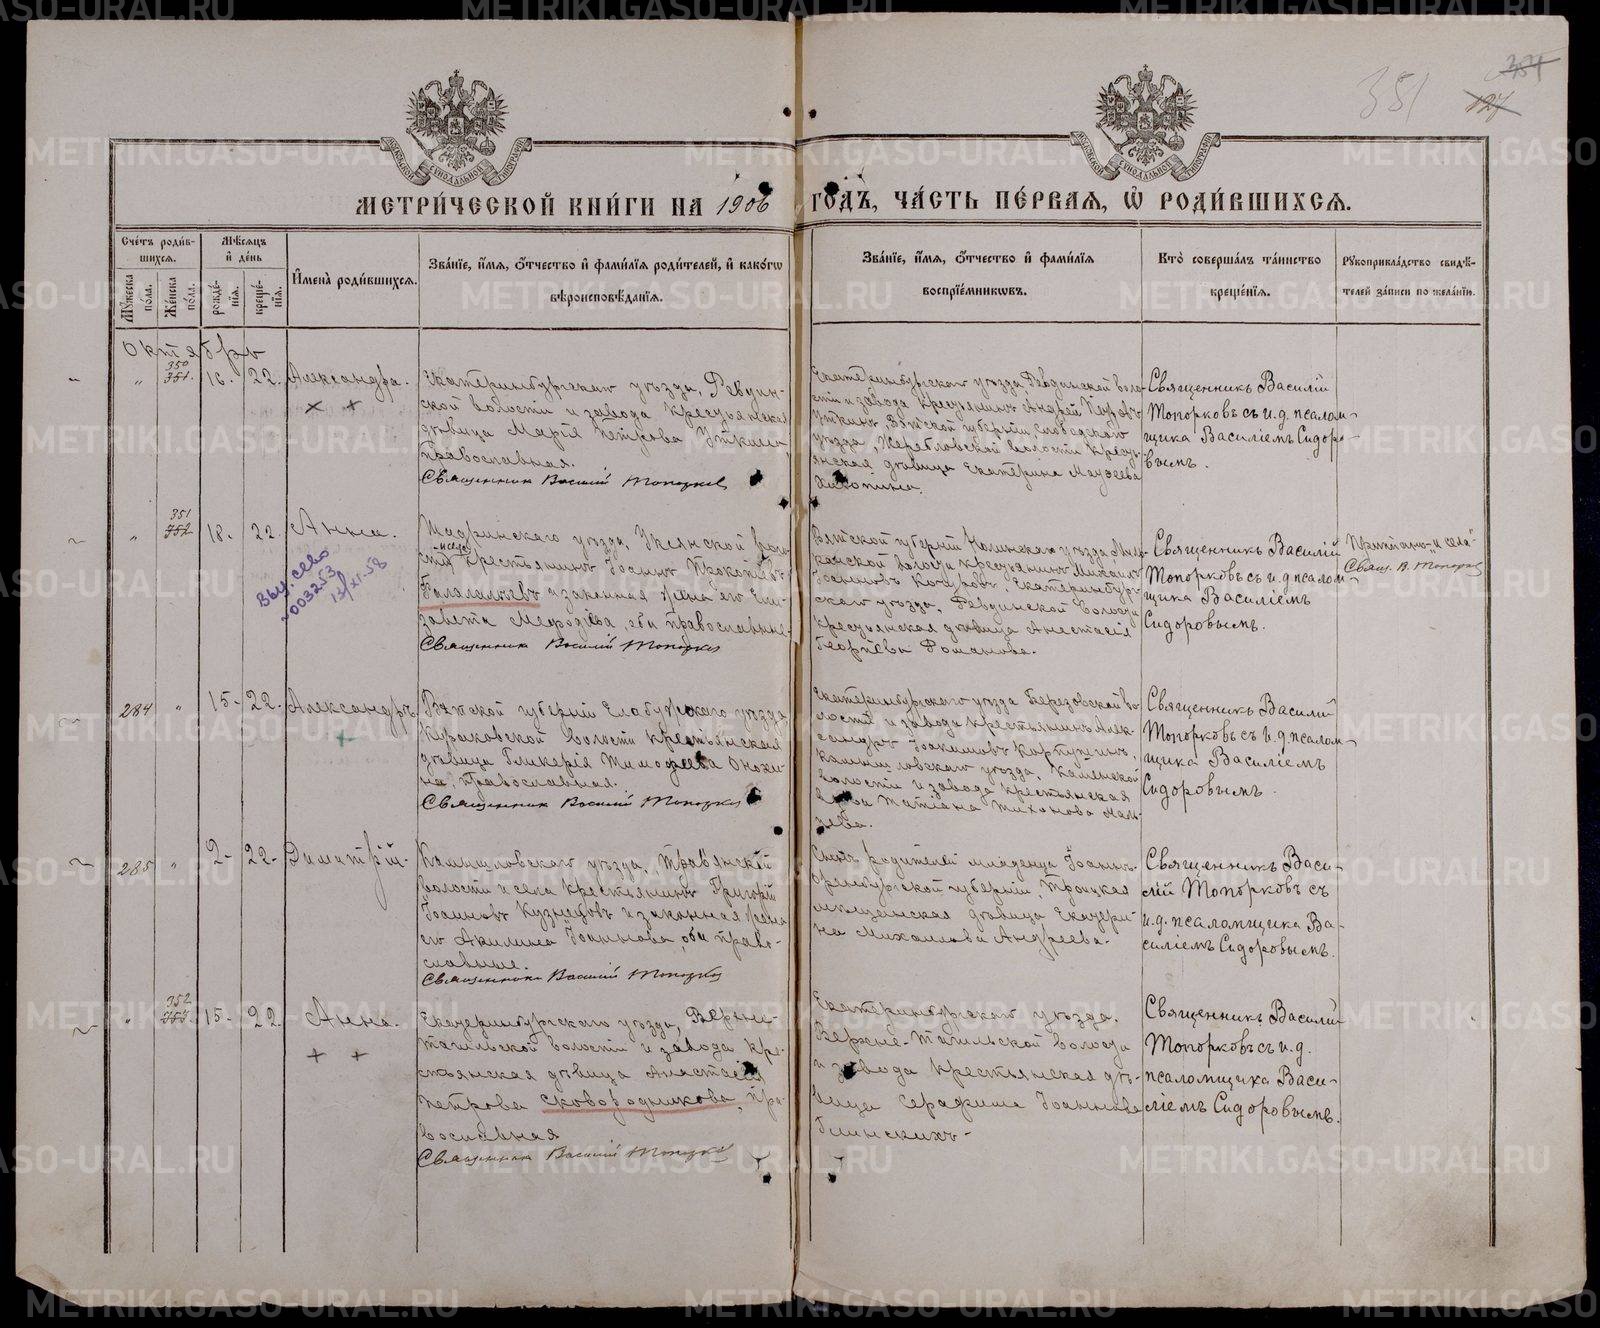 351
354
127
МЕТРИ́ЧЕСКОЙ КНИ́ГИ НА 1906 ГОДЪ, ЧА́СТЬ ПЕ́РВАЯ, Ѡ РОДИ́ВШИХСЯ.
Сче́тъ роди́в-
шихся.
Му́жеска по́ла.
Же́нска по́ла.
Мѣ́сяцъ
и́ де́нь
рожде́-
нія.
креще́-
нія.
И҆мена̀ роди́вшихся.
Зва́ніе, и҆́мя, ѻ҆́тчество и҆ фами́лія роди́телей, и҆ како́гѡ
вѣроисповѣ́данія.
Зва́ніе, и҆́мя, ѻ҆́тчество и҆ фами́лія
воспріе́мникѡвъ.
Кто̀ соверша́лъ та́инство
креще́нія.
Рукоприкла́дство свидѣ́-
телей за́писи по жела́нію.
Октябрь
350
351. 16. 22. Александра.
Екатеринбургскаго уѣзда, Ревдин-
ской волости и завода крестьянская
дѣвица Марія Петрова Уткина,
православная.
Священникъ Василій Топорковъ
Екатеринбургскаго уѣзда, Ревдинской воло-
сти и завода крестьянинъ Андрей Петровъ
Уткинъ, Вятской губерніи Слободскаго
уѣзда, волости кресть-
янская дѣвица Екатерина
Священникъ Василій
Топорковъ съ и.д. псалом-
щика Василіемъ Сидоро-
вымъ.
351
352 18. 22. Анна.
Выд. св-во
003253
13/XI-58
Шадринскаго уѣзда, Уксянской воло-
сти крестьянинъ Іоаннъ Прокопіевъ
и законная жена его Ели-
завета Меѳодіева, оба православные.
Священникъ Василій Топорковъ
Вятской губерніи Нолинскаго уѣзда,
волости крестьянинъ Михаилъ
Іоанновъ Екатеринбург-
скаго уѣзда, Ревдинской волости
крестьянская дѣвица Анастасія
Георгіева Романова.
Священникъ Василій
Топорковъ съ и.д. псалом-
щика Василіемъ
Сидоровымъ.
Приписано „и села“
Свящ. В. Топорковъ
284 15- 22. Александръ.
Вятской губерніи Елабужскаго уѣзда,
Кураковской волости крестьянская
дѣвица Гликерія Тимофеева Онохи-
на, православная.
Священникъ Василій Топорковъ
Екатеринбургскаго уѣзда Березовской во-
лости и завода крестьянинъ Алек-
сандръ Іоакимовъ
Камышловскаго уѣзда, Каменской
волости и завода крестьянская
вдова Татіана Тихонова
Священникъ Василій
Топорковъ съ и.д. псалом-
щика Василіемъ
Сидоровымъ.
285 2- 22- Димитрій-
Камышловскаго уѣзда, Травянской
волости и села крестьянинъ Григорій
Іоанновъ Кузнецовъ и законная жена
его Акилина Іоаннова, оба право-
славные.
Священникъ Василій Топорковъ
Сынъ родителей младенца Іоаннъ.
Оренбургской губерніи, Троицкая
мѣщанская дѣвица Екатери-
на Михаилова Андреева.
Священникъ Васи-
лій Топорковъ съ
и.д. псаломщика Ва-
силіемъ Сидоровымъ.
352
353. 15- 22. Анна.
Екатеринбургскаго уѣзда, Верхне-
тагильской волости и завода кре-
стьянская дѣвица Анастасія
Петрова Сковородникова, пра-
вославная
Священникъ Василій Топорковъ
Екатеринбургскаго уѣзда,
Верхне-Тагильской волости
и завода крестьянская дѣ-
вица Серафима Іоаннова
Глинскихъ-
Священникъ Василій
Топорковъ съ и.д.
псаломщика Васи-
ліемъ Сидоровымъ.
METRIKI.GASO-URAL.RU